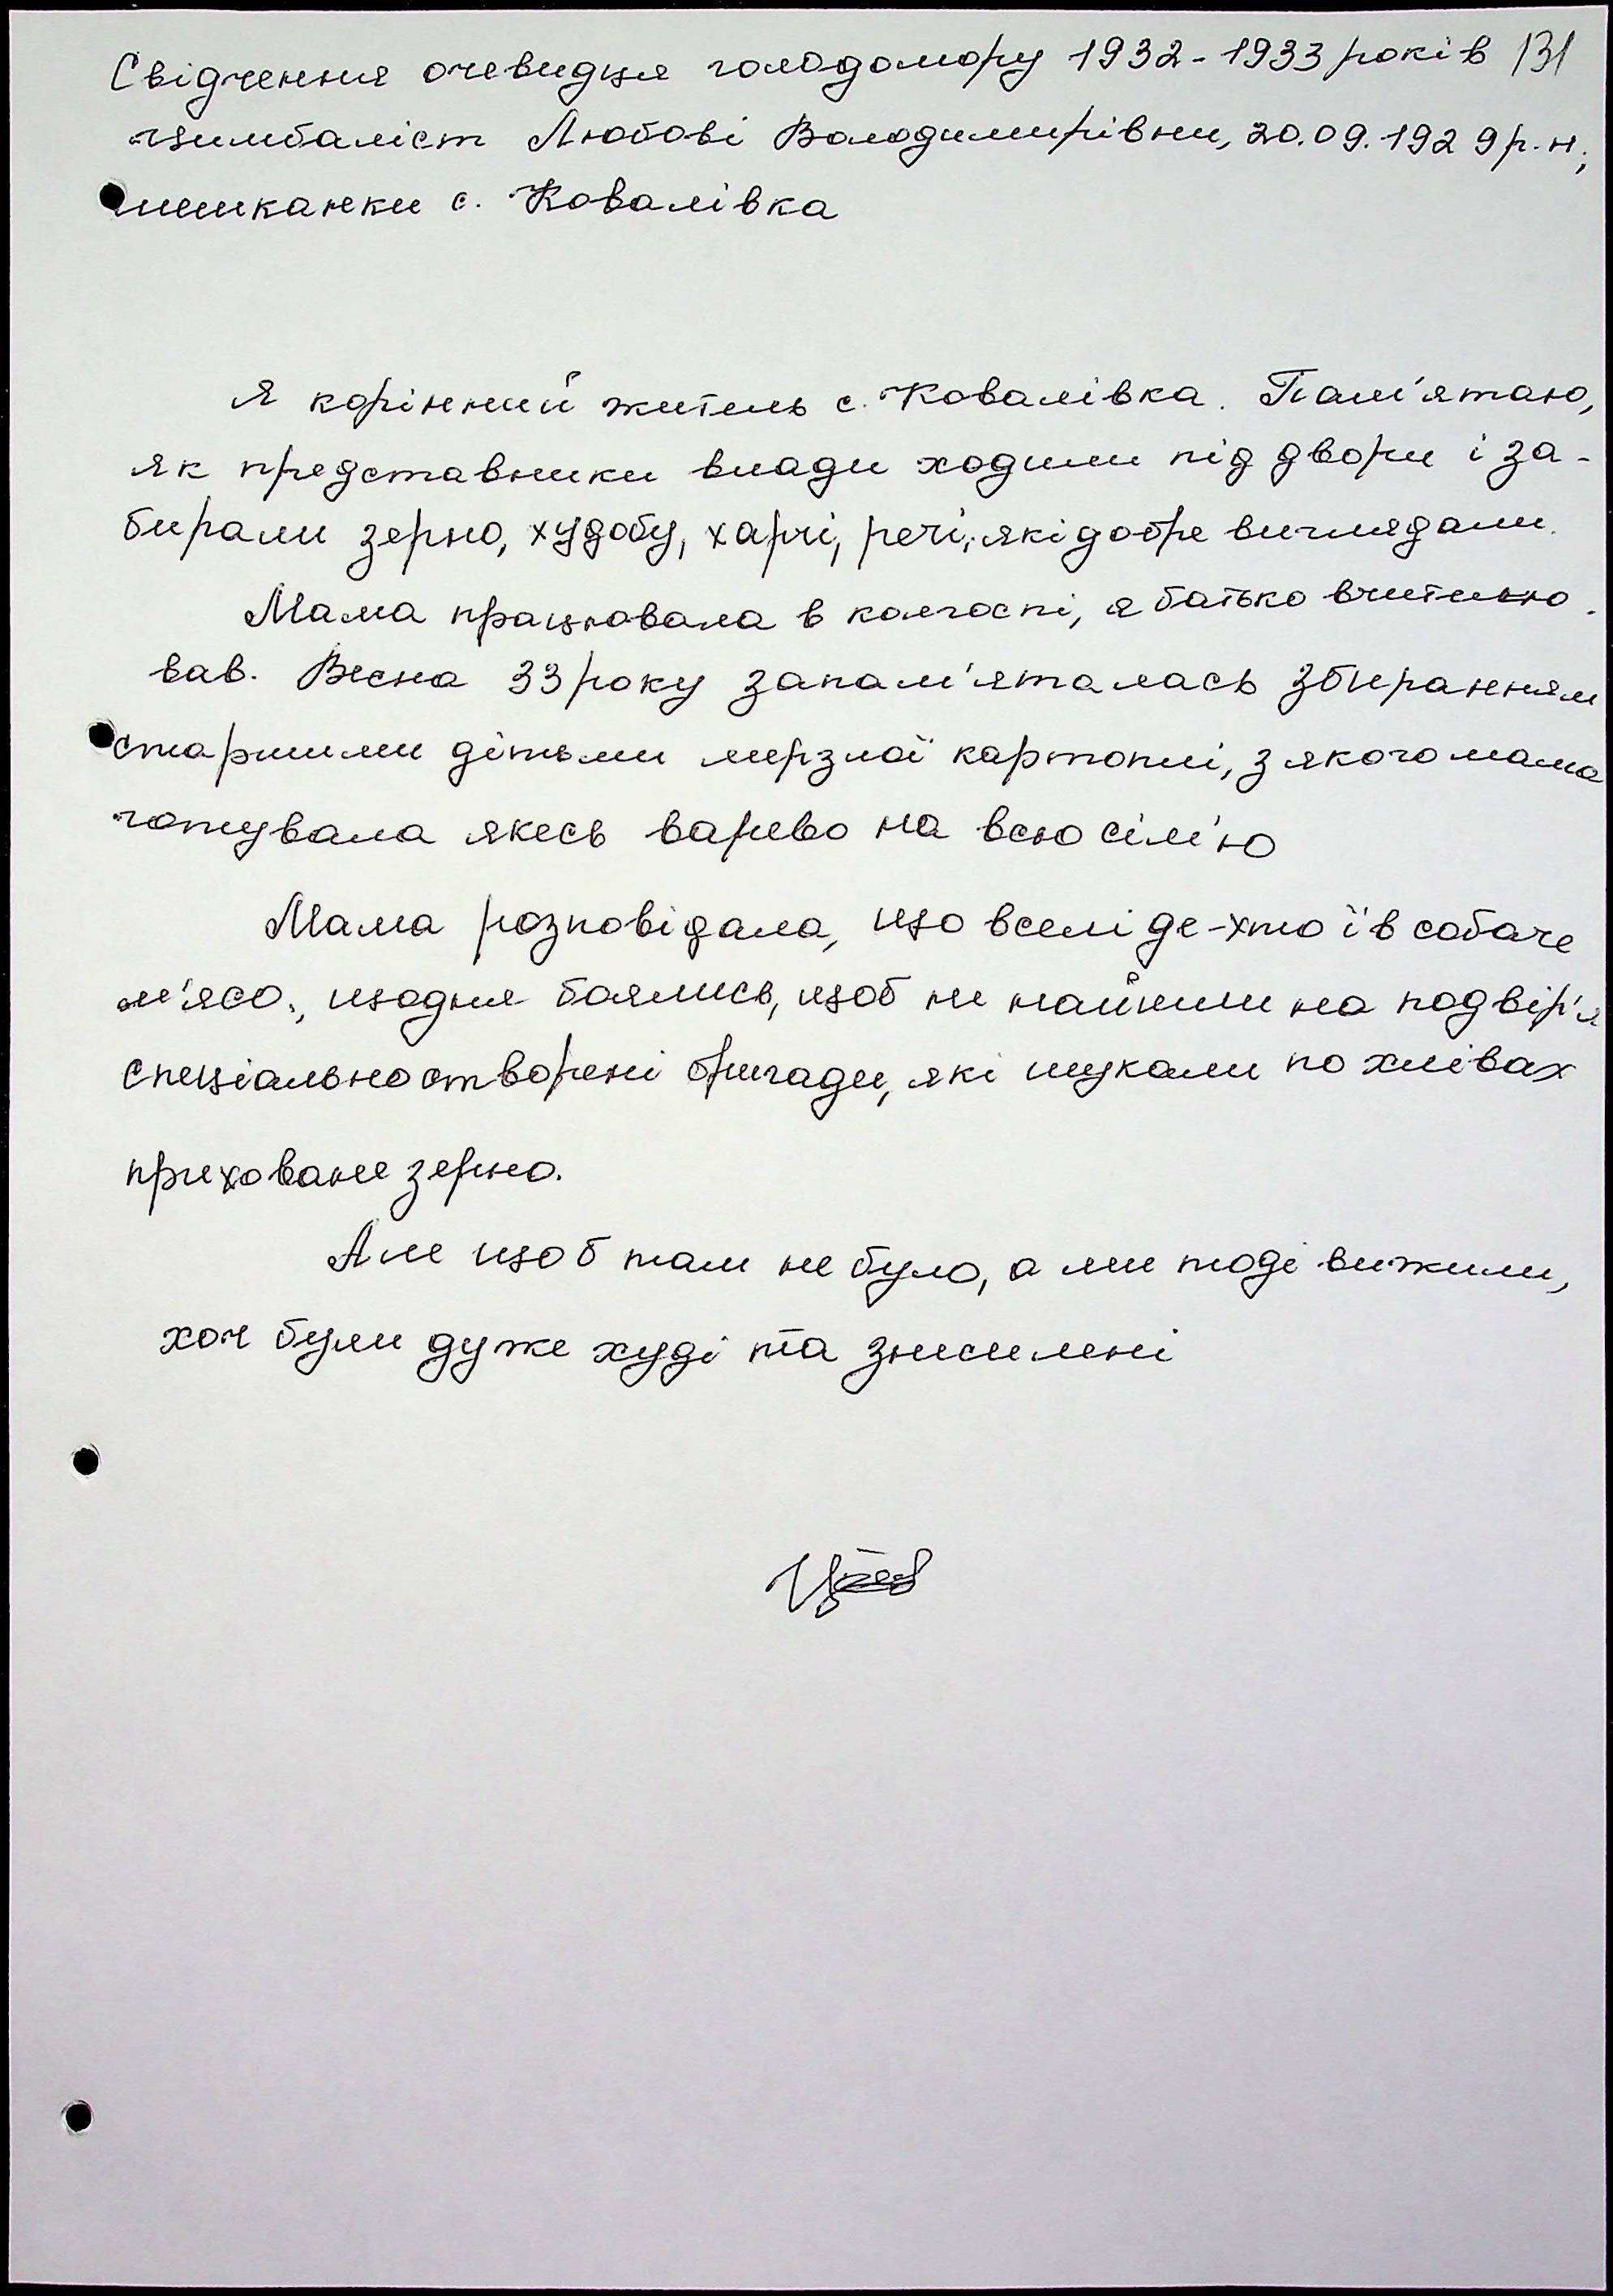 Свідчення очевидця голодомору 1932-1933 років 131
цимбаліст Любові Володимирівни, 20.09.1929р.н.,
мешканки с. Ковалівка
Я корінний житель с. Ковалівка. Пам'ятаю,
як представники влади ходили під двори і за-
бирали зерно, худобу, харчі, речі, які добре виглядали.
Мама працювала в колгоспі, а батько вчителю-
вав. Весна 33 року запам'яталась збиранням
старшими дітьми мерзлої картоплі, з якого мама
готувала якесь варево на всю сім'ю
Мама розповідала, що в селі де-хто їв собаче
м'ясо, щодня боялись, щоб не найшли на подвір'я
спеціально створені бригади, які шукали по хлівах
приховане зерно.
Але щоб там не було, а ми тоді вижили,
хоч були дуже худі та знесилені